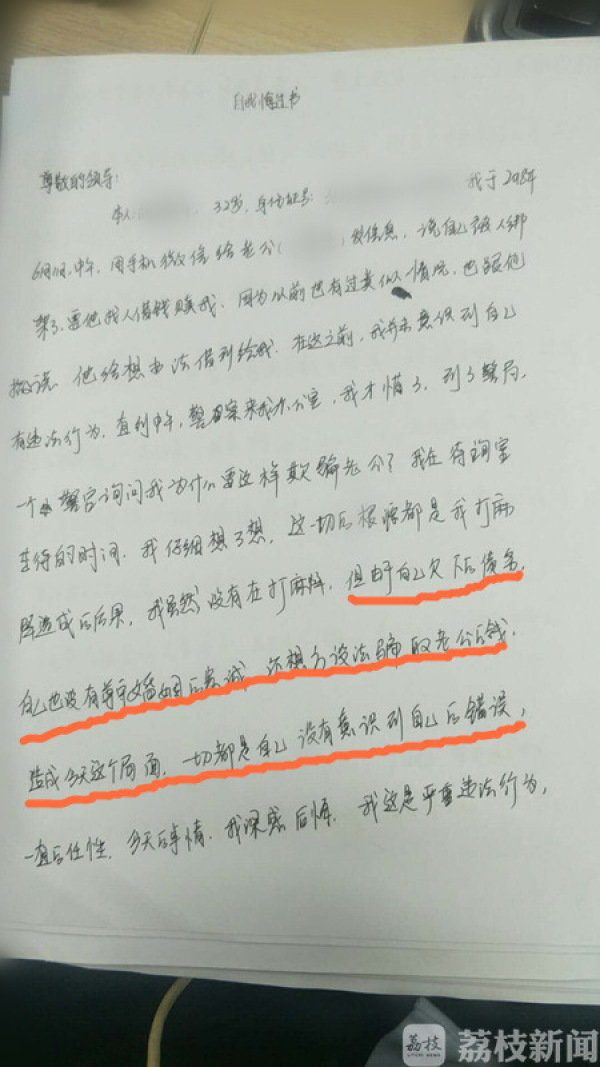 自我悔过书
尊敬的领导:
本人 32岁,身份证号: 我于2018年
6月1日,中午,用手机微信给老公( )发信息,说自己被人绑
架了,要他找人借钱赎我.因为以前也有过类似情况,也跟他
撒谎.他给想办法借到给我.在这之前,我并未意识到自己
有违法行为.直到中午,警察来我办公室,我才懵了,到了警局.
一个 警官询问我为什么要这样欺骗老公?我在待询室
等待的时间.我仔细想了想,这一切后根源都是我打麻
将造成后后果,我虽然没有在打麻将.但由于自己欠下后债务,
自己也没有遵守婚姻后忠诚.还想方设法骗取老公后钱.
造成今天这个局面.一切都是自己没有意识到自己后错误,
一直后任性.今天后事情.我深感后悔.我这是严重违法行为,
荔枝
荔枝新闻